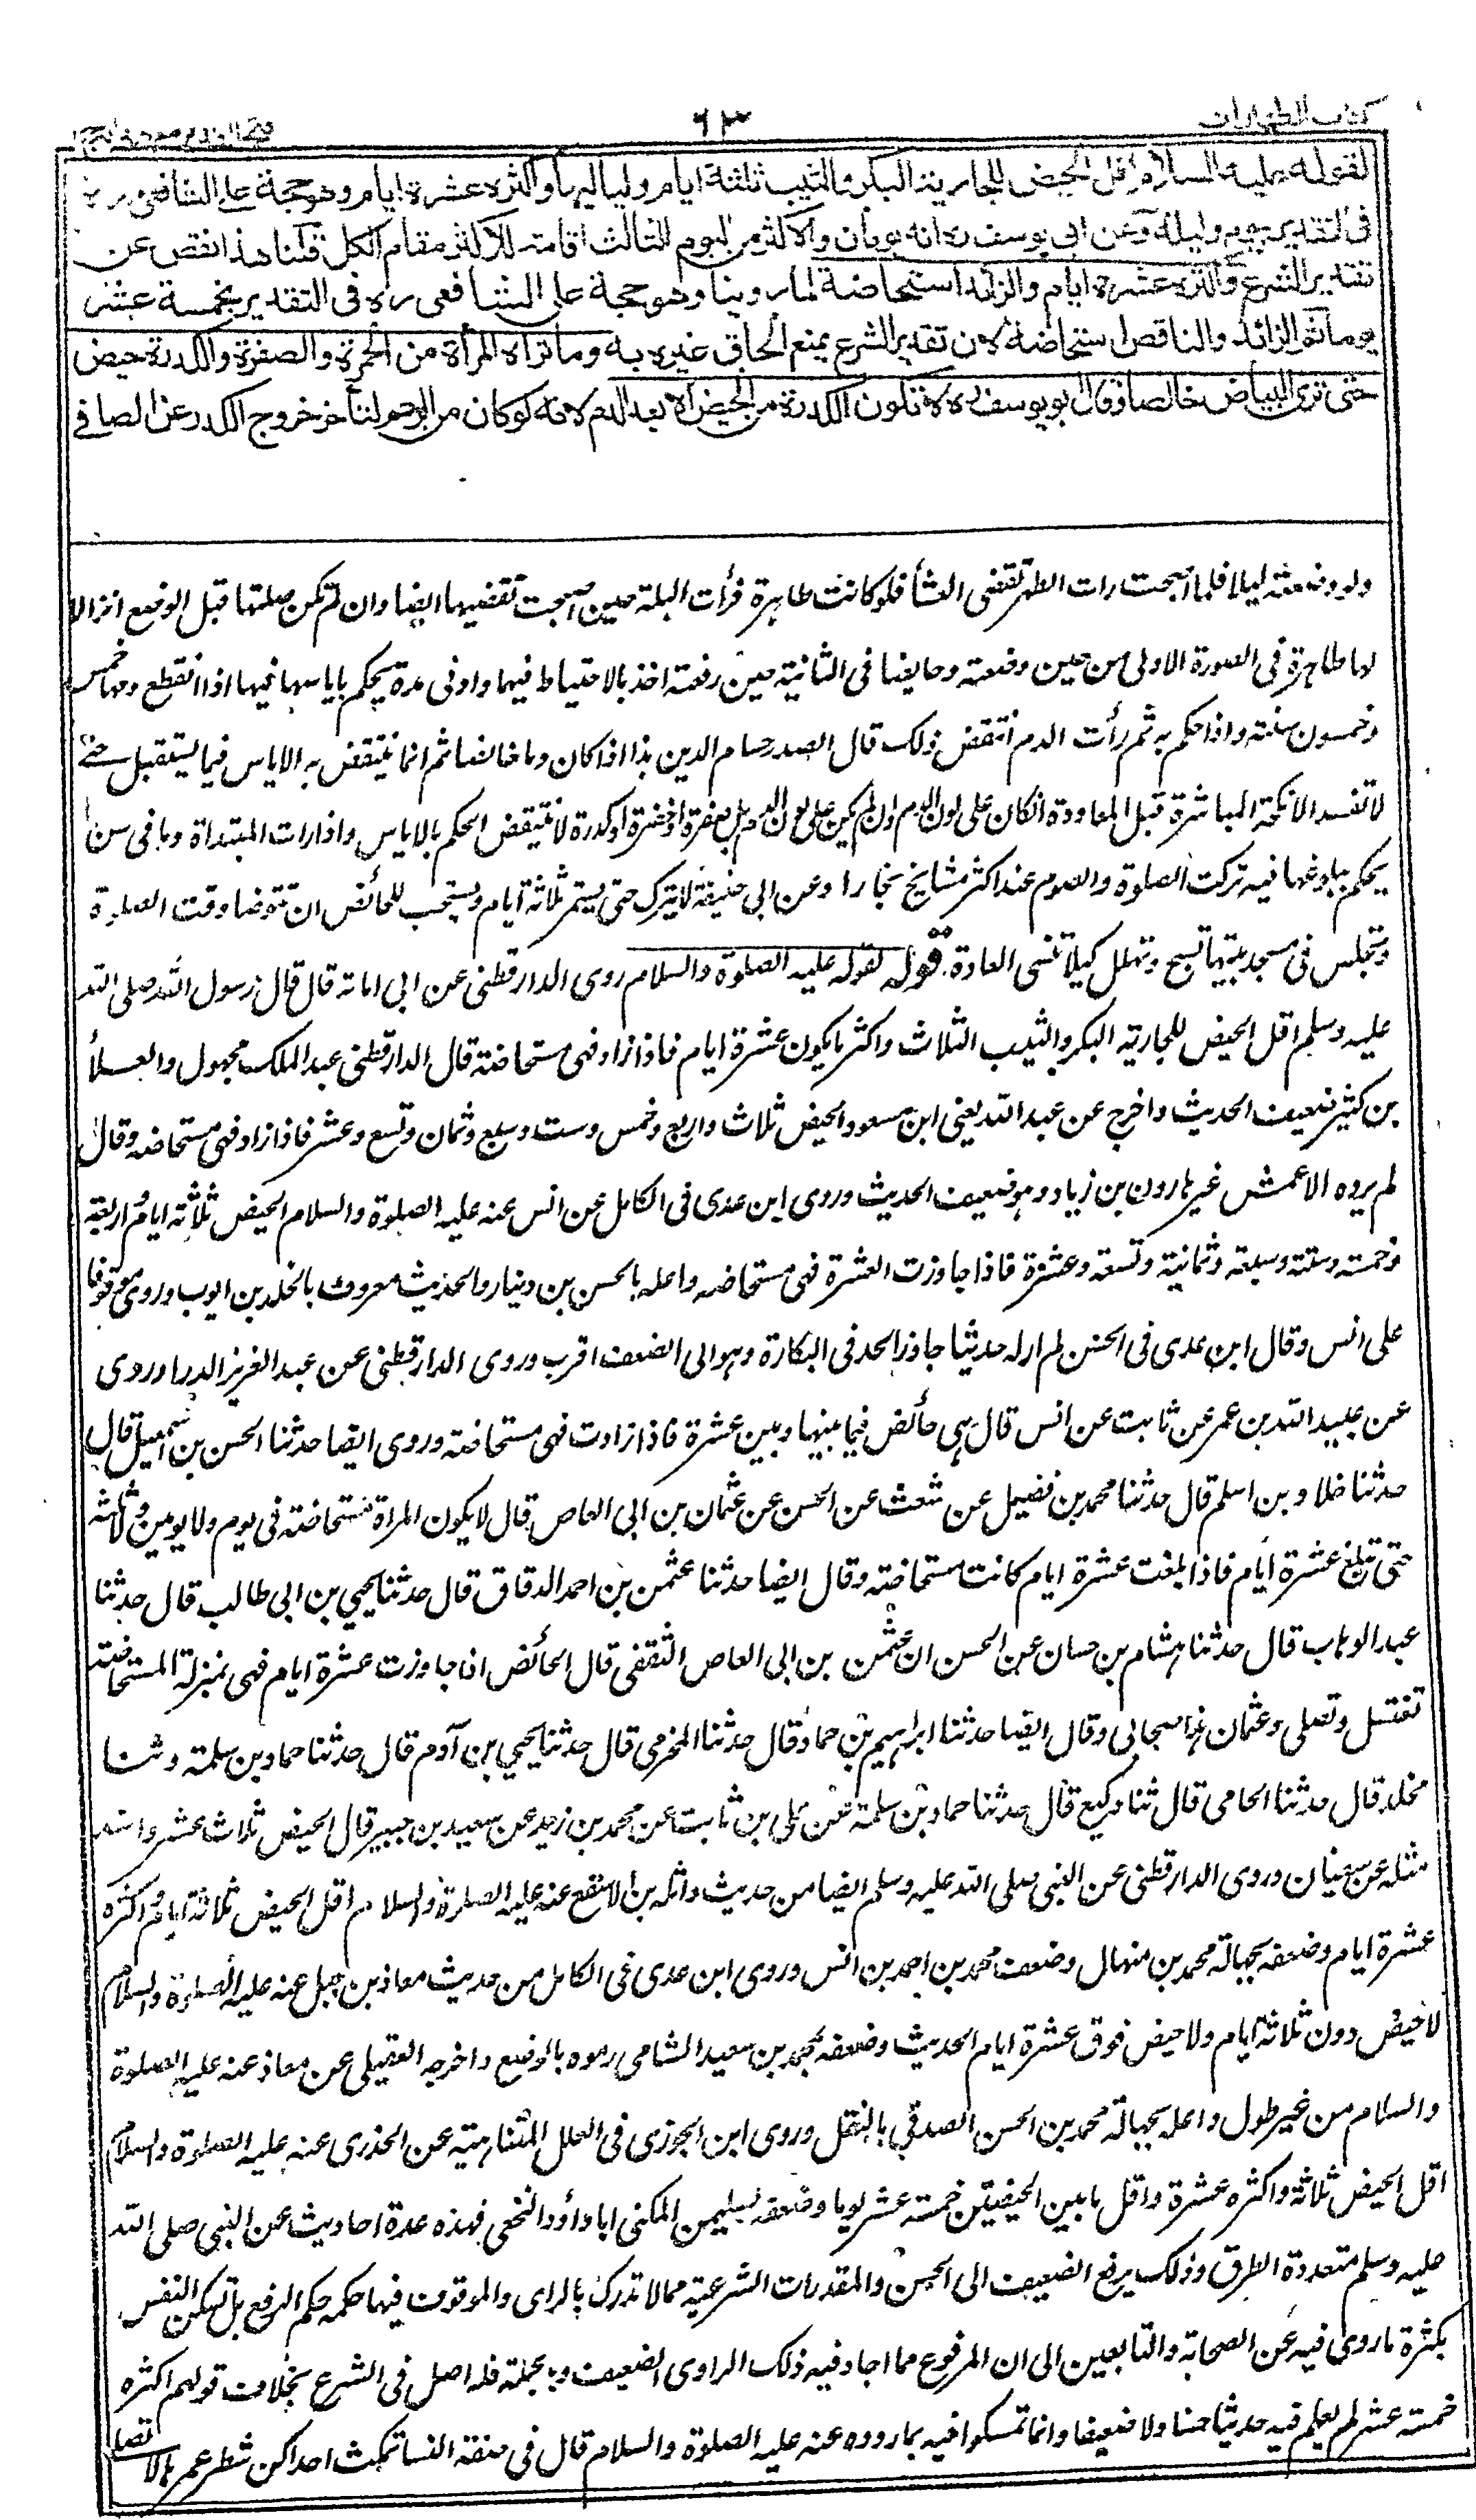 كتاب الطهارات
٦٣
لقوله عليه السلام اقل الحيض للجارية البكر والثيب ثلثة ايام ولياليها واكثره عشرة ايام وهو حجة على الشافعي ره
في التقدير بيوم وليلة وعن ابي يوسف ره انه يومان والاكثر من اليوم الثالث اقامة للاكثر مقام الكل قلنا هذا نقص عن
تقدير الشرع واكثره عشرة ايام والزائد استحاضة لما روينا وهو حجة على الشافعي ره في التقدير بخمسة عشر
يوما ثم الزائد والناقص استحاضة لان تقدير الشرع يمنع الحاق غيره به وما تراه المرأة من الحمرة والصفرة والكدرة حيض
حتى ترى البياض خالصا وقال ابو يوسف ره لا تكون الكدرة من الحيض الا بعد الدم لانه لو كان من الرحم لتأخر خروج الكدر عن الصافي
ولو وضعته ليلا فلما اصبحت رات الطهر تقضي العشا فلو كانت طاهرة فرأت البلة حين اصبحت تقضيها ايضا وان لم تكن صلتها قبل الوضع انزالا
لها طاهرة في الصورة الاولى من حين وضعته وحايضا في الثانية حين رفعته اخذ بالاحتياط فيها وادنى مدة يحكم باياسها فيها اذا انقطع دمها خمس
وخمسون سنة واذا حكم به ثم رأت الدم انتقض ذلك قال الصدر حسام الدين هذا اذا كان دما خالصا ثم انما ينتقض به الاياس فيما يستقبل حتى
لا تفسد الانكحة المباشرة قبل المعاودة انكان على لون الدم وان لم يكن على لون الدم بل صفرة او خضرة او كدرة لا ينتقض الحكم بالاياس واذا رات المبتداة دما في سن
يحكم ببلوغها فيه تركت الصلوة والصوم عند اكثر مشايخ بخارا وعن ابي حنيفة لا تترك حتى يستمر ثلاثة ايام ويستحب للحائض ان تتوضا وقت الصلوة
وتجلس في مسجد بيتها تسبح وتهلل كيلا تنسى العادة قوله لقوله عليه الصلوة والسلام روى الدارقطني عن ابي امامة قال قال رسول الله صلى الله
عليه وسلم اقل الحيض للجارية البكر والثيب الثلاث واكثر ما يكون عشرة ايام فاذا زاد فهى مستحاضة قال الدارقطني عبد الملك مجهول والعلأ
بن كثير ضعيف الحديث واخرج عن عبد الله يعنى ابن مسعود الحيض ثلاث واربع وخمس وست وسبع وثمان وتسع وعشر فاذا زاد فهى مستحاضه وقال
لم يروه الاعمش غير هارون بن زياد وهو ضعيف الحديث وروى ابن عدى في الكامل عن انس عنه عليه الصلوة والسلام الحيض ثلاثة ايام واربعة
وخمسة وستة وسبعة وثمانية وتسعة وعشرة فاذا جاوزت العشرة فهى مستحاضه واعله بالحسن بن دينار والحديث معروف بالخلد بن ايوب وروى موقوفا
على انس وقال ابن عدى في الحسن لم ار له حديثا جاوز الحد في النكارة وهو الى الضعف اقرب وروى الدارقطني عن عبد العزيز الدراوردى
عن عبيد الله بن عمر عن ثابت عن انس قال هى حائض فيما بينها وبين عشرة فاذا زادت فهى مستحاضة وروى ايضا حدثنا الحسن بن اسمعيل قال
حدثنا خلاد بن اسلم قال حدثنا محمد بن فضيل عن شعث عن الحسن عن عثمان بن ابى العاص قال لا يكون المراة مستحاضة في يوم ولا يومين وثلاثه
حتى تبلغ عشرة ايام فاذا بلغت عشرة ايام كانت مستحاضة وقال ايضا حدثنا عثمن بن احمد الدقاق قال حدثنا يحيى بن ابي طالب قال حدثنا
عبد الوهاب قال حدثنا هشام بن حسان عن الحسن ان عثمن بن ابي العاص الثقفى قال الحائض اذا جاوزت عشرة ايام فهى بمنزلة المستحاضة
تغتسل وتصلى وعثمان هذا صحابى وقال ايضا حدثنا ابراهيم بن حماد قال حدثنا المخرمى قال حدثنا يحيى بن آدم قال حدثنا حماد بن سلمة وثنا
مخلد قال حدثنا الحامى قال ثنا وكيع قال حدثنا حماد بن سلمة عن على بن ثابت عن محمد بن زيد عن سعيد بن جبير قال الحيض ثلاث عشر واسند
مثله عن سفيان وروى الدارقطني عن النبى صلى الله عليه وسلم ايضا من حديث واثله بن الاسقع عنه عليه الصلوة والسلام اقل الحيض ثلاثة ايام واكثره
عشرة ايام وضعفه بجهالة محمد بن منهال وضعف محمد بن احمد بن انس وروى ابن عدى في الكامل من حديث معاذ بن جبل عنه عليه الصلوة والسلام
لا حيض دون ثلاثة ايام ولا حيض فوق عشرة ايام الحديث وضعفه بمحمد بن سعيد الشامى رموه بالوضع واخرجه العقيلى عن معاذ عنه عليه الصلوة
والسلام من غير طول واعله بجهالة محمد بن الحسن الصدقى بالنقل وروى ابن الجوزى في العلل المتناهية عن الخدرى عنه عليه الصلوة والسلام
اقل الحيض ثلاثة واكثره عشرة واقل ما بين الحيضتين خمسة عشر يوما وضعفه بسليمن المكنى ابا داؤد النخعى فهذه عدة احاديث عن النبى صلى الله
عليه وسلم متعددة الطرق وذلك يرفع الضعيف الى الحسن والمقدرات الشرعية مما لا تدرك بالراى والموقوف فيها حكمه حكم الرفع بل تسكن النفس
بكثرة ما روى فيه عن الصحابة والتابعين الى ان المرفوع مما اجاد فيه ذلك الراوى الضعيف وبالجملة فله اصل في الشرع بخلاف قولهم اكثره
خمسة عشر لم يعلم فيه حديثا حسنا ولا ضعيفا وانما تمسكوا فيه بما رووه عنه عليه الصلوة والسلام قال في صفة النسا تمكث احداكن شطر عمرها لا
تصلى